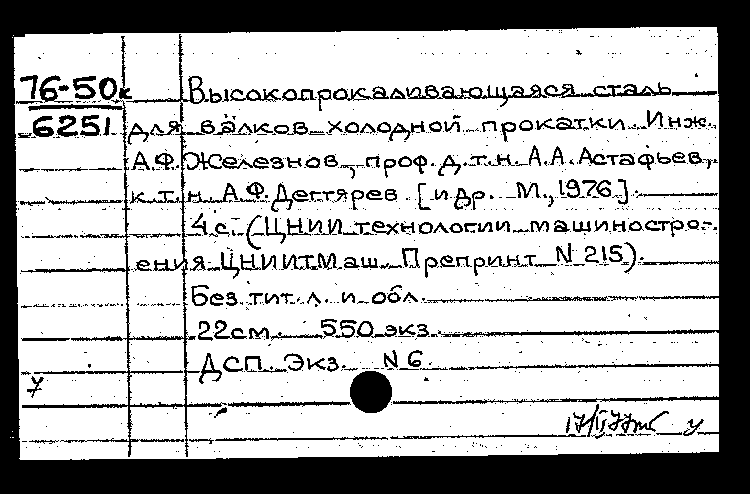 76-50к Высокопрокаливающаяся сталь
6251 для валков холодной прокатки. Инж.
А.Ф. Железнов, проф. д.т.н. А.А. Астафьев,
к.т.н. А.Ф. Дегтярев [и др. М., 1976].
4 с. (ЦНИИ технологии машиностро-
ения ЦНИИТМаш. Препринт N 215).
Без тит. л. и обл.
22см. 550 экз.
ДСП. Экз. N 6.